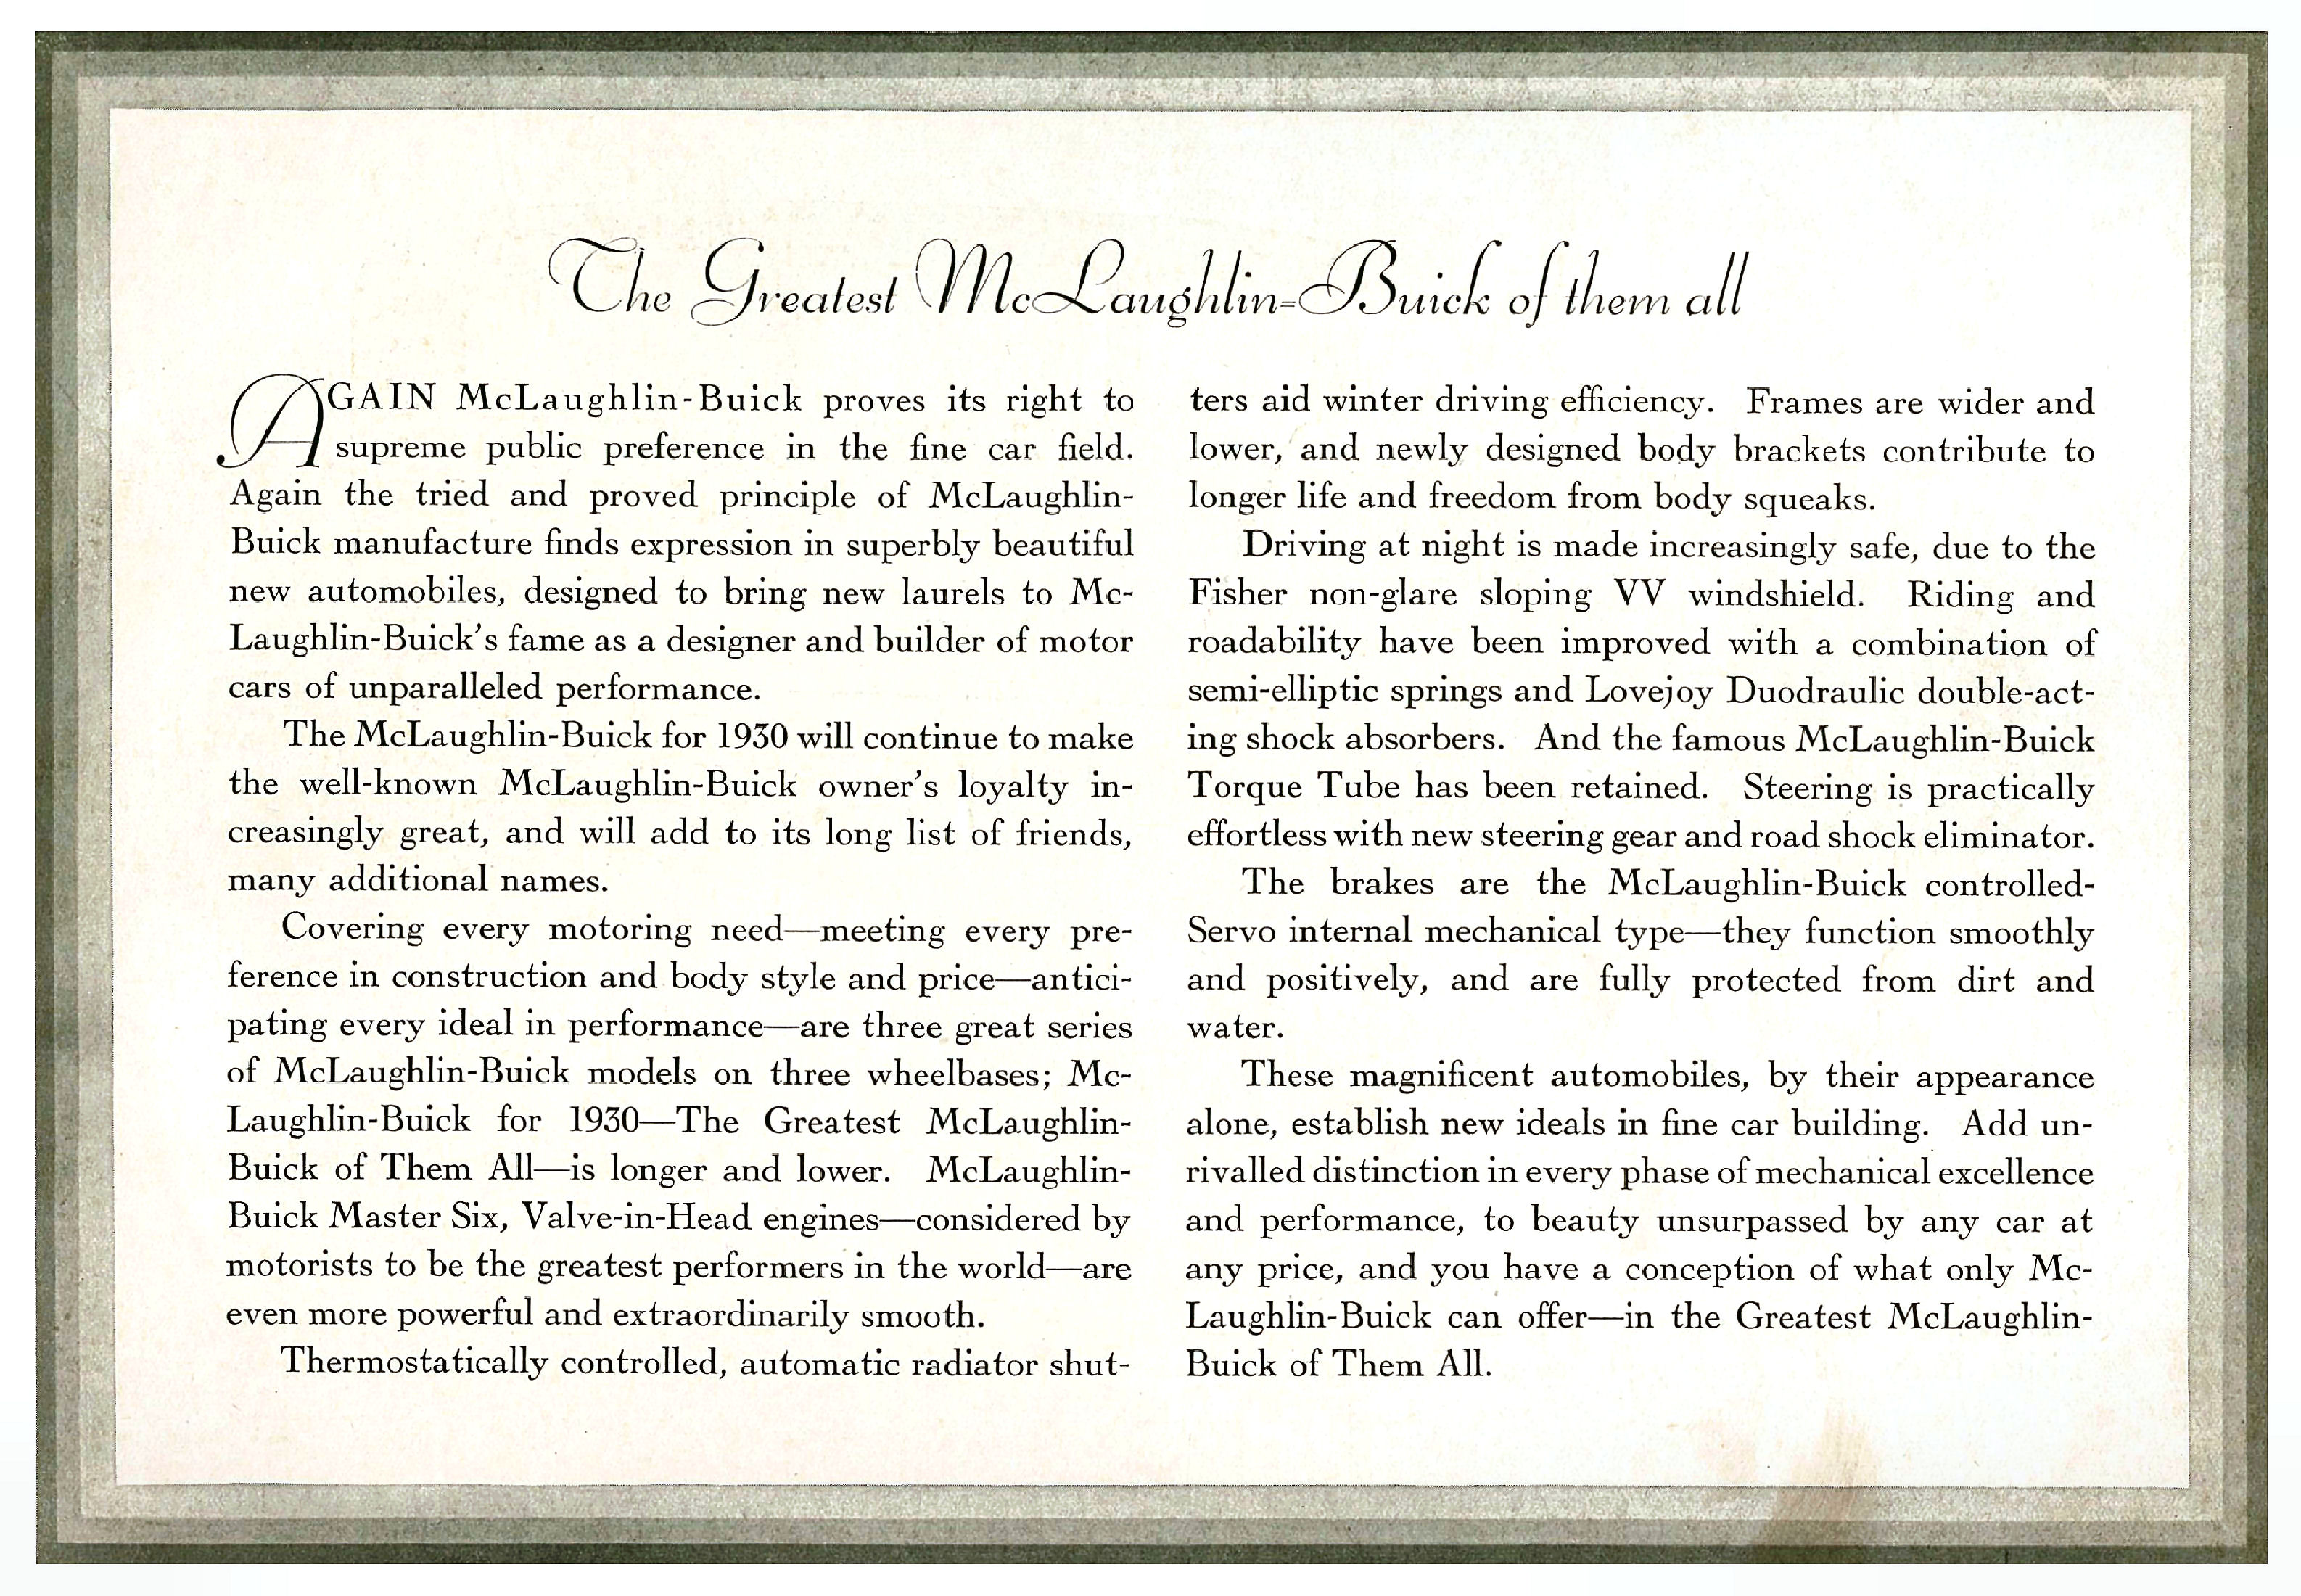 The Greatest McLaughlin-Buick of them all
AGAIN McLaughlin-Buick proves its right to
supreme public preference in the fine car field.
Again the tried and proved principle of McLaughlin-
Buick manufacture finds expression in superbly beautiful
new automobiles, designed to bring new laurels to Mc-
Laughlin-Buick's fame as a designer and builder of motor
cars of unparalleled performance.
The McLaughlin-Buick for 1930 will continue to make
the well-known McLaughlin-Buick owner's loyalty in-
creasingly great, and will add to its long list of friends,
many additional names.
Covering every motoring need—meeting every pre-
ference in construction and body style and price—antici-
pating every ideal in performance—are three great series
of McLaughlin-Buick models on three wheelbases; Mc-
Laughlin-Buick for 1930—The Greatest McLaughlin-
Buick of Them All—is longer and lower. McLaughlin-
Buick Master Six, Valve-in-Head engines—considered by
motorists to be the greatest performers in the world—are
even more powerful and extraordinarily smooth.
Thermostatically controlled, automatic radiator shut-
ters aid winter driving efficiency. Frames are wider and
lower, and newly designed body brackets contribute to
longer life and freedom from body squeaks.
Driving at night is made increasingly safe, due to the
Fisher non-glare sloping VV windshield. Riding and
roadability have been improved with a combination of
semi-elliptic springs and Lovejoy Duodraulic double-act-
ing shock absorbers. And the famous McLaughlin-Buick
Torque Tube has been retained. Steering is practically
effortless with new steering gear and road shock eliminator.
The brakes are the McLaughlin-Buick controlled-
Servo internal mechanical type—they function smoothly
and positively, and are fully protected from dirt and
water.
These magnificent automobiles, by their appearance
alone, establish new ideals in fine car building. Add un-
rivalled distinction in every phase of mechanical excellence
and performance, to beauty unsurpassed by any car at
any price, and you have a conception of what only Mc-
Laughlin-Buick can offer—in the Greatest McLaughlin-
Buick of Them All.